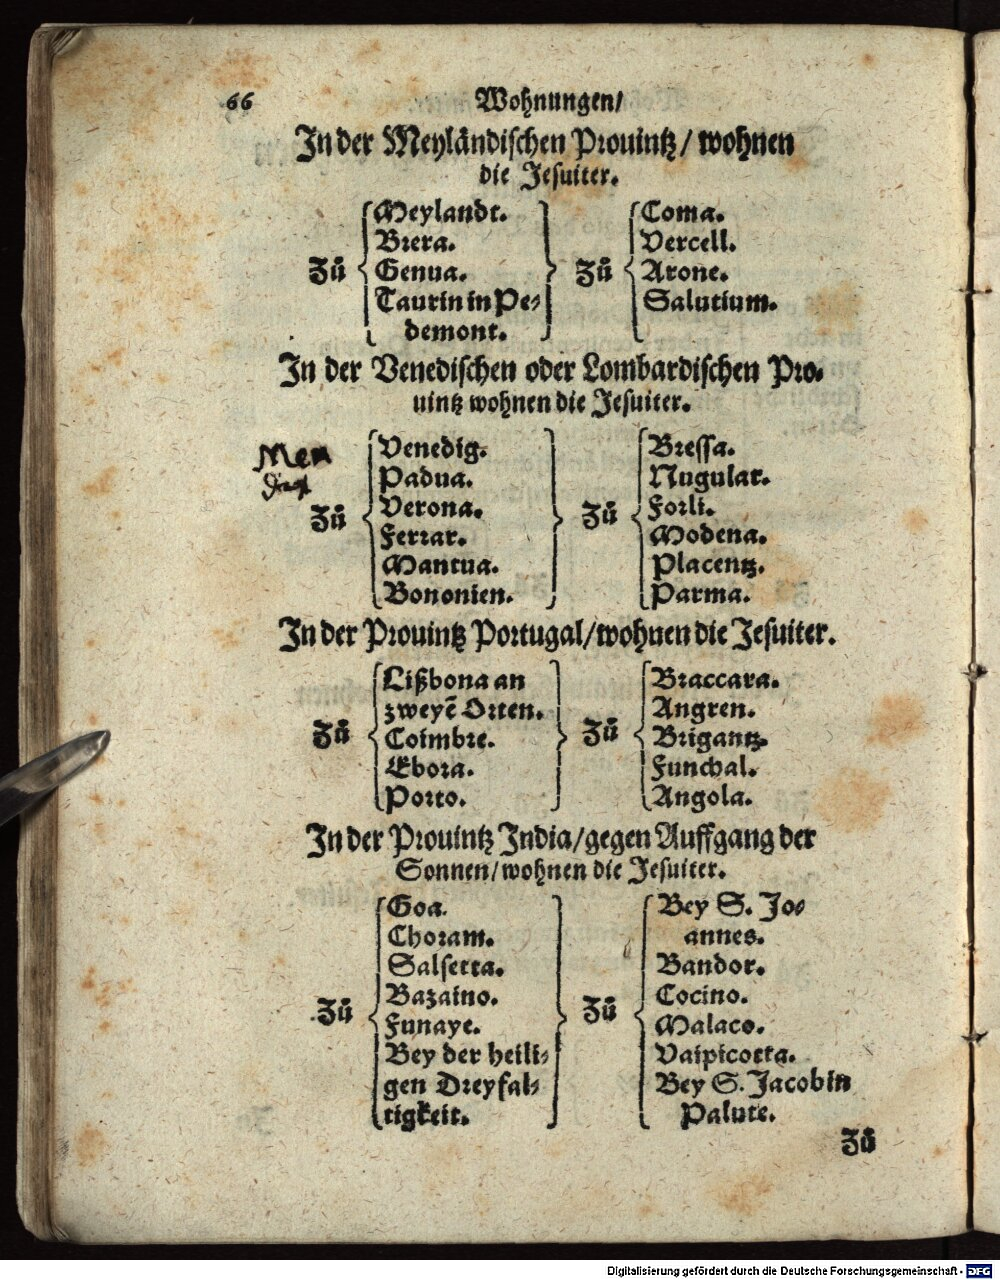 66
Wohnungen/
In der Meyländischen Prouintz/ wohnen
die Jesuiter.
Zů
Meylandt.
Brera.
Genua.
Taurin in Pe-
demont.
Zů
Coma.
Vercell.
Arone.
Salutium.
In der Venedischen oder Lombardischen Pro-
uintz wohnen die Jesuiter.
Zů
Venedig.
Padua.
Verona.
Ferrar.
Mantua.
Bononien.
Zů
Bressa.
Nugular.
Forli.
Modena.
Placentz.
Parma.
In der Prouintz Portugal/wohnen die Jesuiter.
Zů
Lißbona an
zweyē Orten.
Coimbre.
Ebora.
Porto.
Zů
Braccara.
Angren.
Brigantz.
Funchal.
Angola.
In der Prouintz India/gegen Auffgang der
Sonnen/wohnen die Jesuiter.
Zů
Goa.
Choram.
Salsetta.
Bazaino.
Funaye.
Bey der heili-
gen Dreyfal-
tigkeit.
Zů
Bey S. Jo-
annes.
Bandor.
Cocino.
Malaco.
Vaipicotta.
Bey S. Jacobin
Palute.
Zů
Digitalisierung gefördert durch die Deutsche Forschungsgemeinschaft - DFG